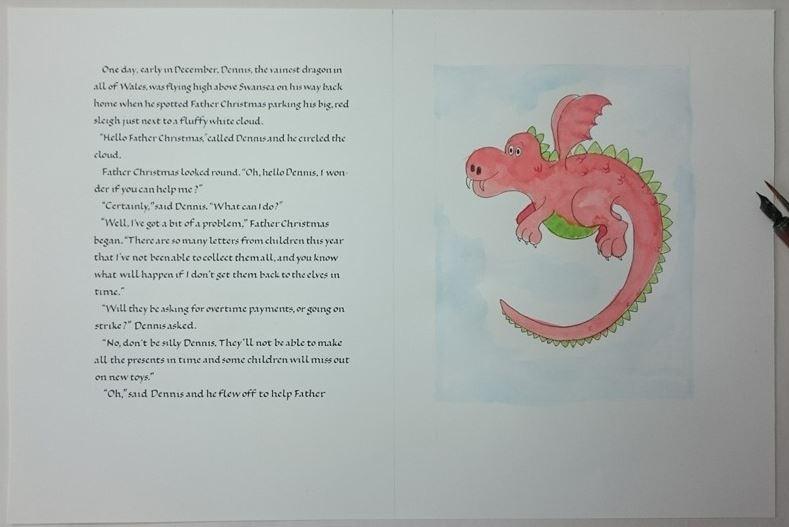 One day, early in December, Dennis, the vainest dragon in
all of Wales, was flying high above Swansea on his way back
home when he spotted Father Christmas parking his big, red
sleigh just next to a fluffy white cloud.
"Hello Father Christmas," called Dennis and he circled the
cloud.
Father Christmas looked round. "Oh, hello Dennis, I won-
der if you can help me?"
"Certainly," said Dennis. "What can I do?"
"Well, I've got a bit of a problem," Father Christmas
began. "There are so many letters from children this year
that I've not been able to collect them all, and you know
what will happen if I don't get them back to the elves in
time."
"Will they be asking for overtime payments, or going on
strike?" Dennis asked.
"No, don't be silly Dennis. They'll not be able to make
all the presents in time and some children will miss out
on new toys."
"Oh," said Dennis and he flew off to help Father